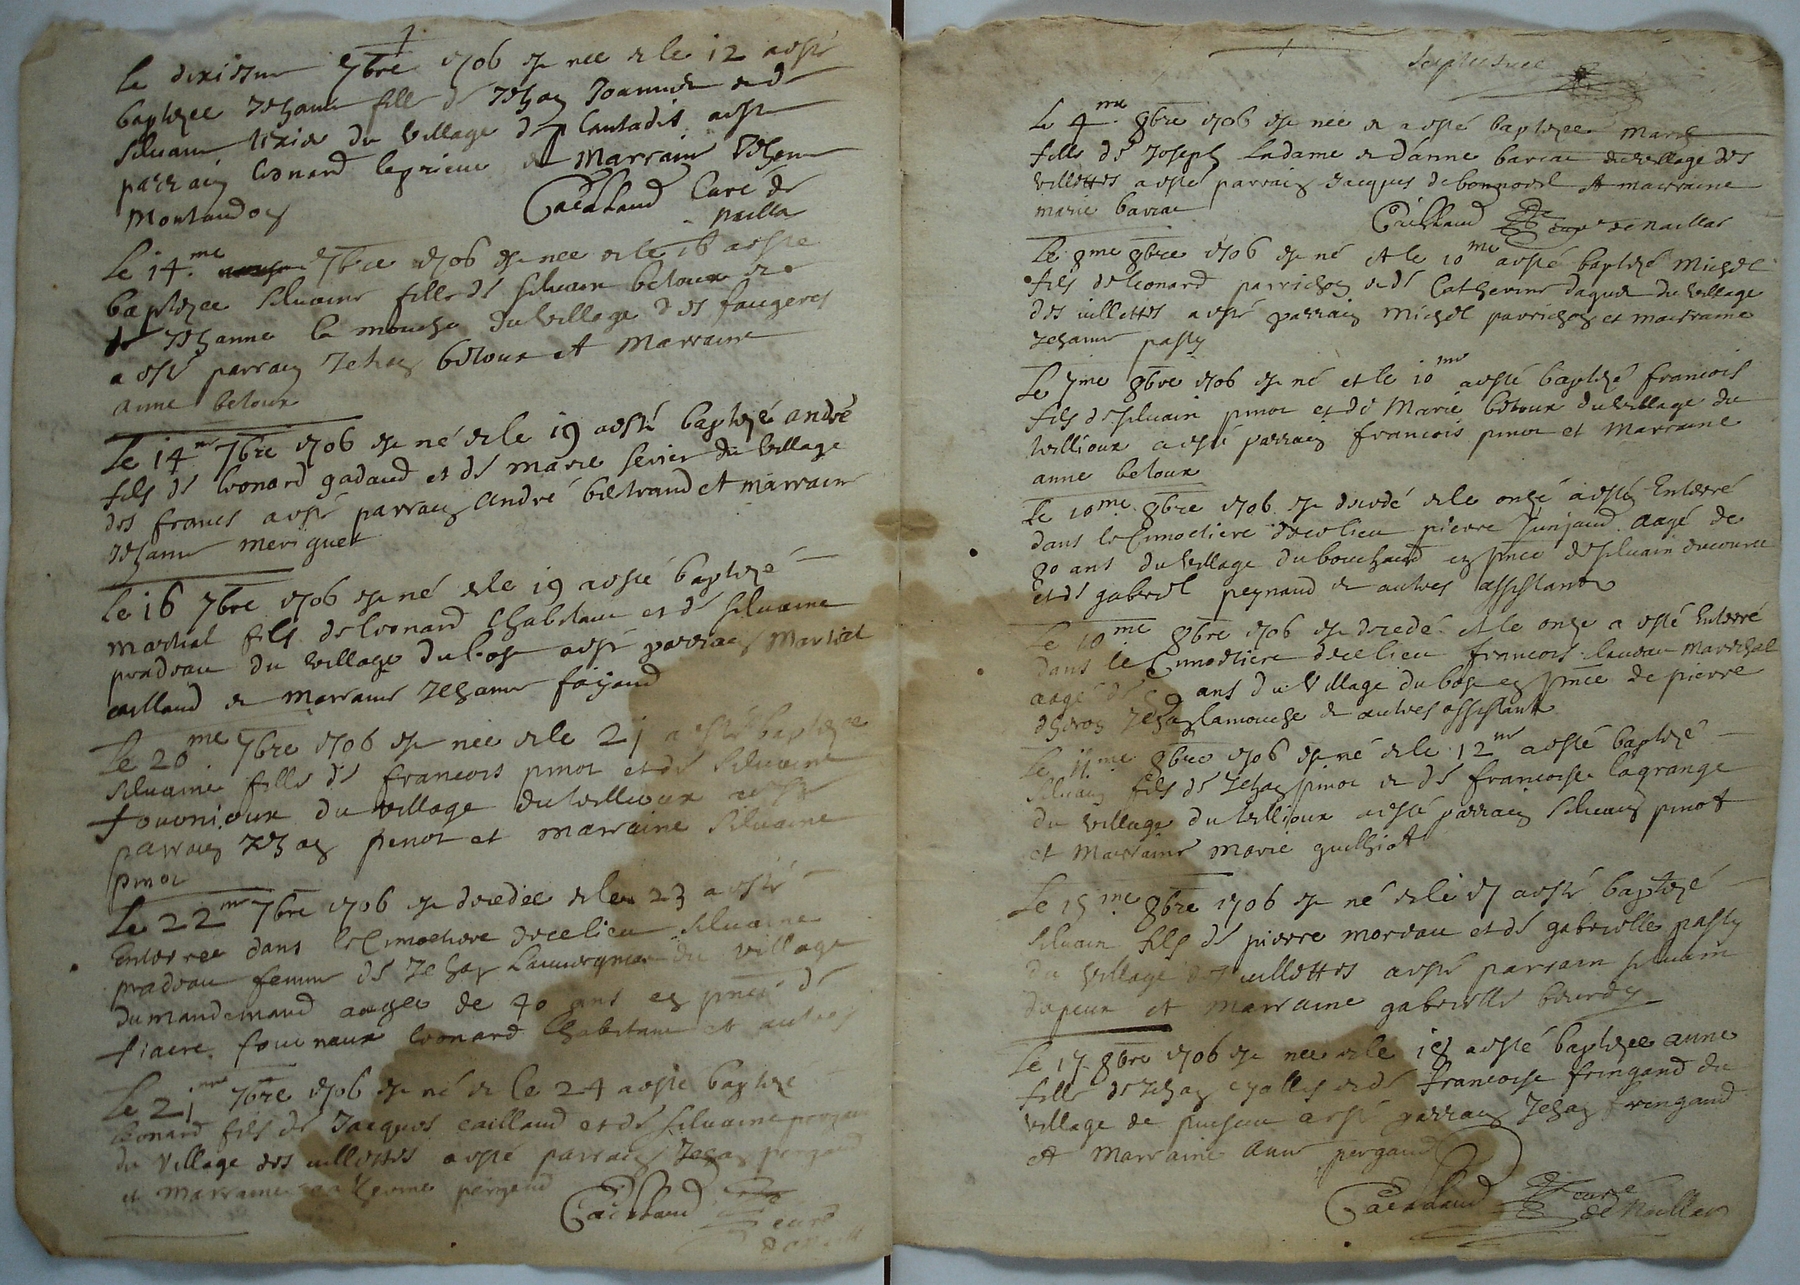 Le dixiesme 7bre 1706 est nee et le 12 a esté
baptizee Jehanne fille de Jehan Joannet et de
Silvaine texier du village de Cantadis a esté
parrain leonard leprieur et Marraine Jehanne
Montaudon
Caeabaud Curé de
naillat
Le 14.me 7bre 1706 est nee et le 16 a esté
baptizee Silvaine fille de Silvain betoux et
de Jehanne la mouche du village des faugeres
a esté parrain Jehan betoux et Marraine
anne betoux
Le 14me 7bre 1706 est né et le 19 a esté baptizé andré
fils de leonard gadaud et de marie
du village
des francs a esté parrain andré bertrand et marraine
Jehanne meriguet
Le 16 7bre 1706 est né et le 19 a esté baptizé
martial fils de leonard Chabetaux et de silvaine
pradeau du village du bost a esté parrain Martial
caillaud et Marraine Jehanne fayaud
Le 20me 7bre 1706 est nee et le 21 a esté baptizee
Silvaine fille de francois pinot et de Silvaine
fournioux du village du villioux a esté
parrain Jehan pinot et marraine Silvaine
pinot
Le 22me 7bre 1706 est decedée et le 23 a esté
Enterree dans le Cimoetiere de ce lieu Silvaine
pradeau femme de Jehan du village
du mandemaud aagée de 40 ans en pnce de
fiacre fourneaux leonard Chabetaux et autres
Le 21me 7bre 1706 est né et le 24 a esté baptizé
leonard fils de Jacques caillaud et de Silvaine pergaud
du village des villettes a esté parrain Jehan pergaud
et Marraine catherine pergaud
Caeabaud curé
de naillat
Le 4.me 8bre 1706 est nee et a esté baptizee Marie
fille de Joseph Ladame et d'anne bariac du village des
villettes a esté parrain Jacques de bonnoeil et marraine
marie bariac
Caeabaud curé de naillat
Le 8me 8bre 1706 est né et le 10me a esté baptizé Michel
fils de leonard parrichon et de Catherine daguet du village
des villettes a esté parrain Michel parrichon et marraine
Jehanne pasty
Le 7me 8bre 1706 est né et le 10me a esté baptizé francois
fils de silvain pinot et de Marie betoux du village du
villioux a esté parrain francois pinot et Marraine
anne betoux
Le 10me 8bre 1706 est decedé et le onze a esté Enterré
dans le Cimoetiere de ce lieu pierre Junjaud aagé de
80 ans du village du bouchaud en pnce de silvain
et de gabriel peynaud et autres assistants
Le 10me 8bre 1706 est decedé et le onze a esté Enterré
dans le Cimoetiere de ce lieu francois Maréchal
aagé de ans du village du bost en pnce de pierre
Jehan lamouche et autres assistants
Le 11me 8bre 1706 est né et le 12me a esté baptizé
Silvain fils de Jehan pinot et de francoise lagrange
du village du villioux a esté parrain Silvain pinot
et Marraine marie guilhiot
Le 15me 8bre 1706 est né et le 17 a esté baptizé
Silvain fils de pierre moreau et de gabrielle pasty
du village des villettes a esté parrain silvain
dapeux et Marraine gabrielle bourdy
Le 17 8bre 1706 est nee et le 18 a esté baptizee anne
fille de Jehan et de francoise fringaud du
village de a esté parrain Jehan fringaud
et Marraine anne pergaud
Caeabaud curé
de Naillat